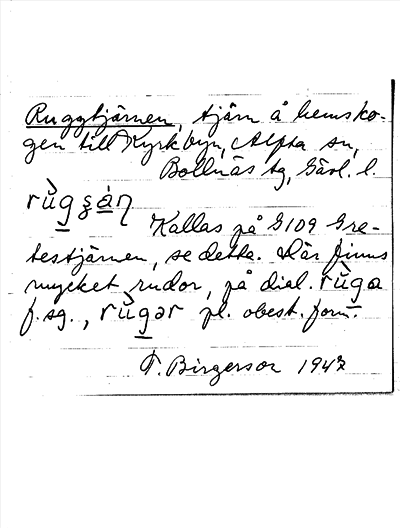 Ruggtjärnen, tjärn å hemsko-
gen till Kyrkbyn, Alfta sn,
Bollnäs tg, Gävl. l.
rùgʒán
Kallas på G109 Gre-
testjärnen, se detta. Där finns
mycket rudor, på dial. rùga
f. sg., rùgər pl. obest. form.
F. Birgerson 1947